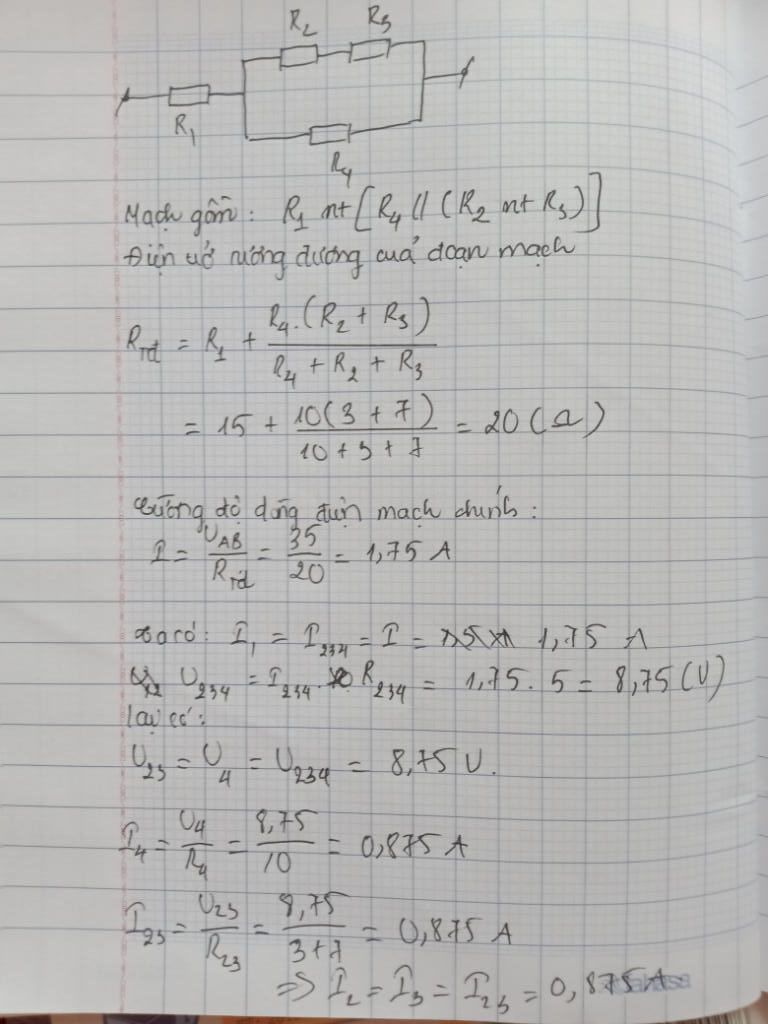 R2 R3
R1
R4
Mạch gồm: R1 nt [R4 // (R2 nt R3)]
Điện trở tương đương cuả đoạn mạch
Rtđ = R1 + R4.(R2 + R3) / R4 + R2 + R3
= 15 + 10(3 + 7) / 10 + 3 + 7 = 20 (Ω)
Cường độ dòng điện mạch chính:
I = UAB / Rtđ = 35 / 20 = 1,75 A
Ta có: I1 = I234 = I = 1,75 A
U234 = I234 . R234 = 1,75 . 5 = 8,75 (V)
lại có:
U23 = U4 = U234 = 8,75 V.
I4 = U4 / R4 = 8,75 / 10 = 0,875 A
I23 = U23 / R23 = 8,75 / 3+7 = 0,875 A
=> I2 = I3 = I23 = 0,875 A